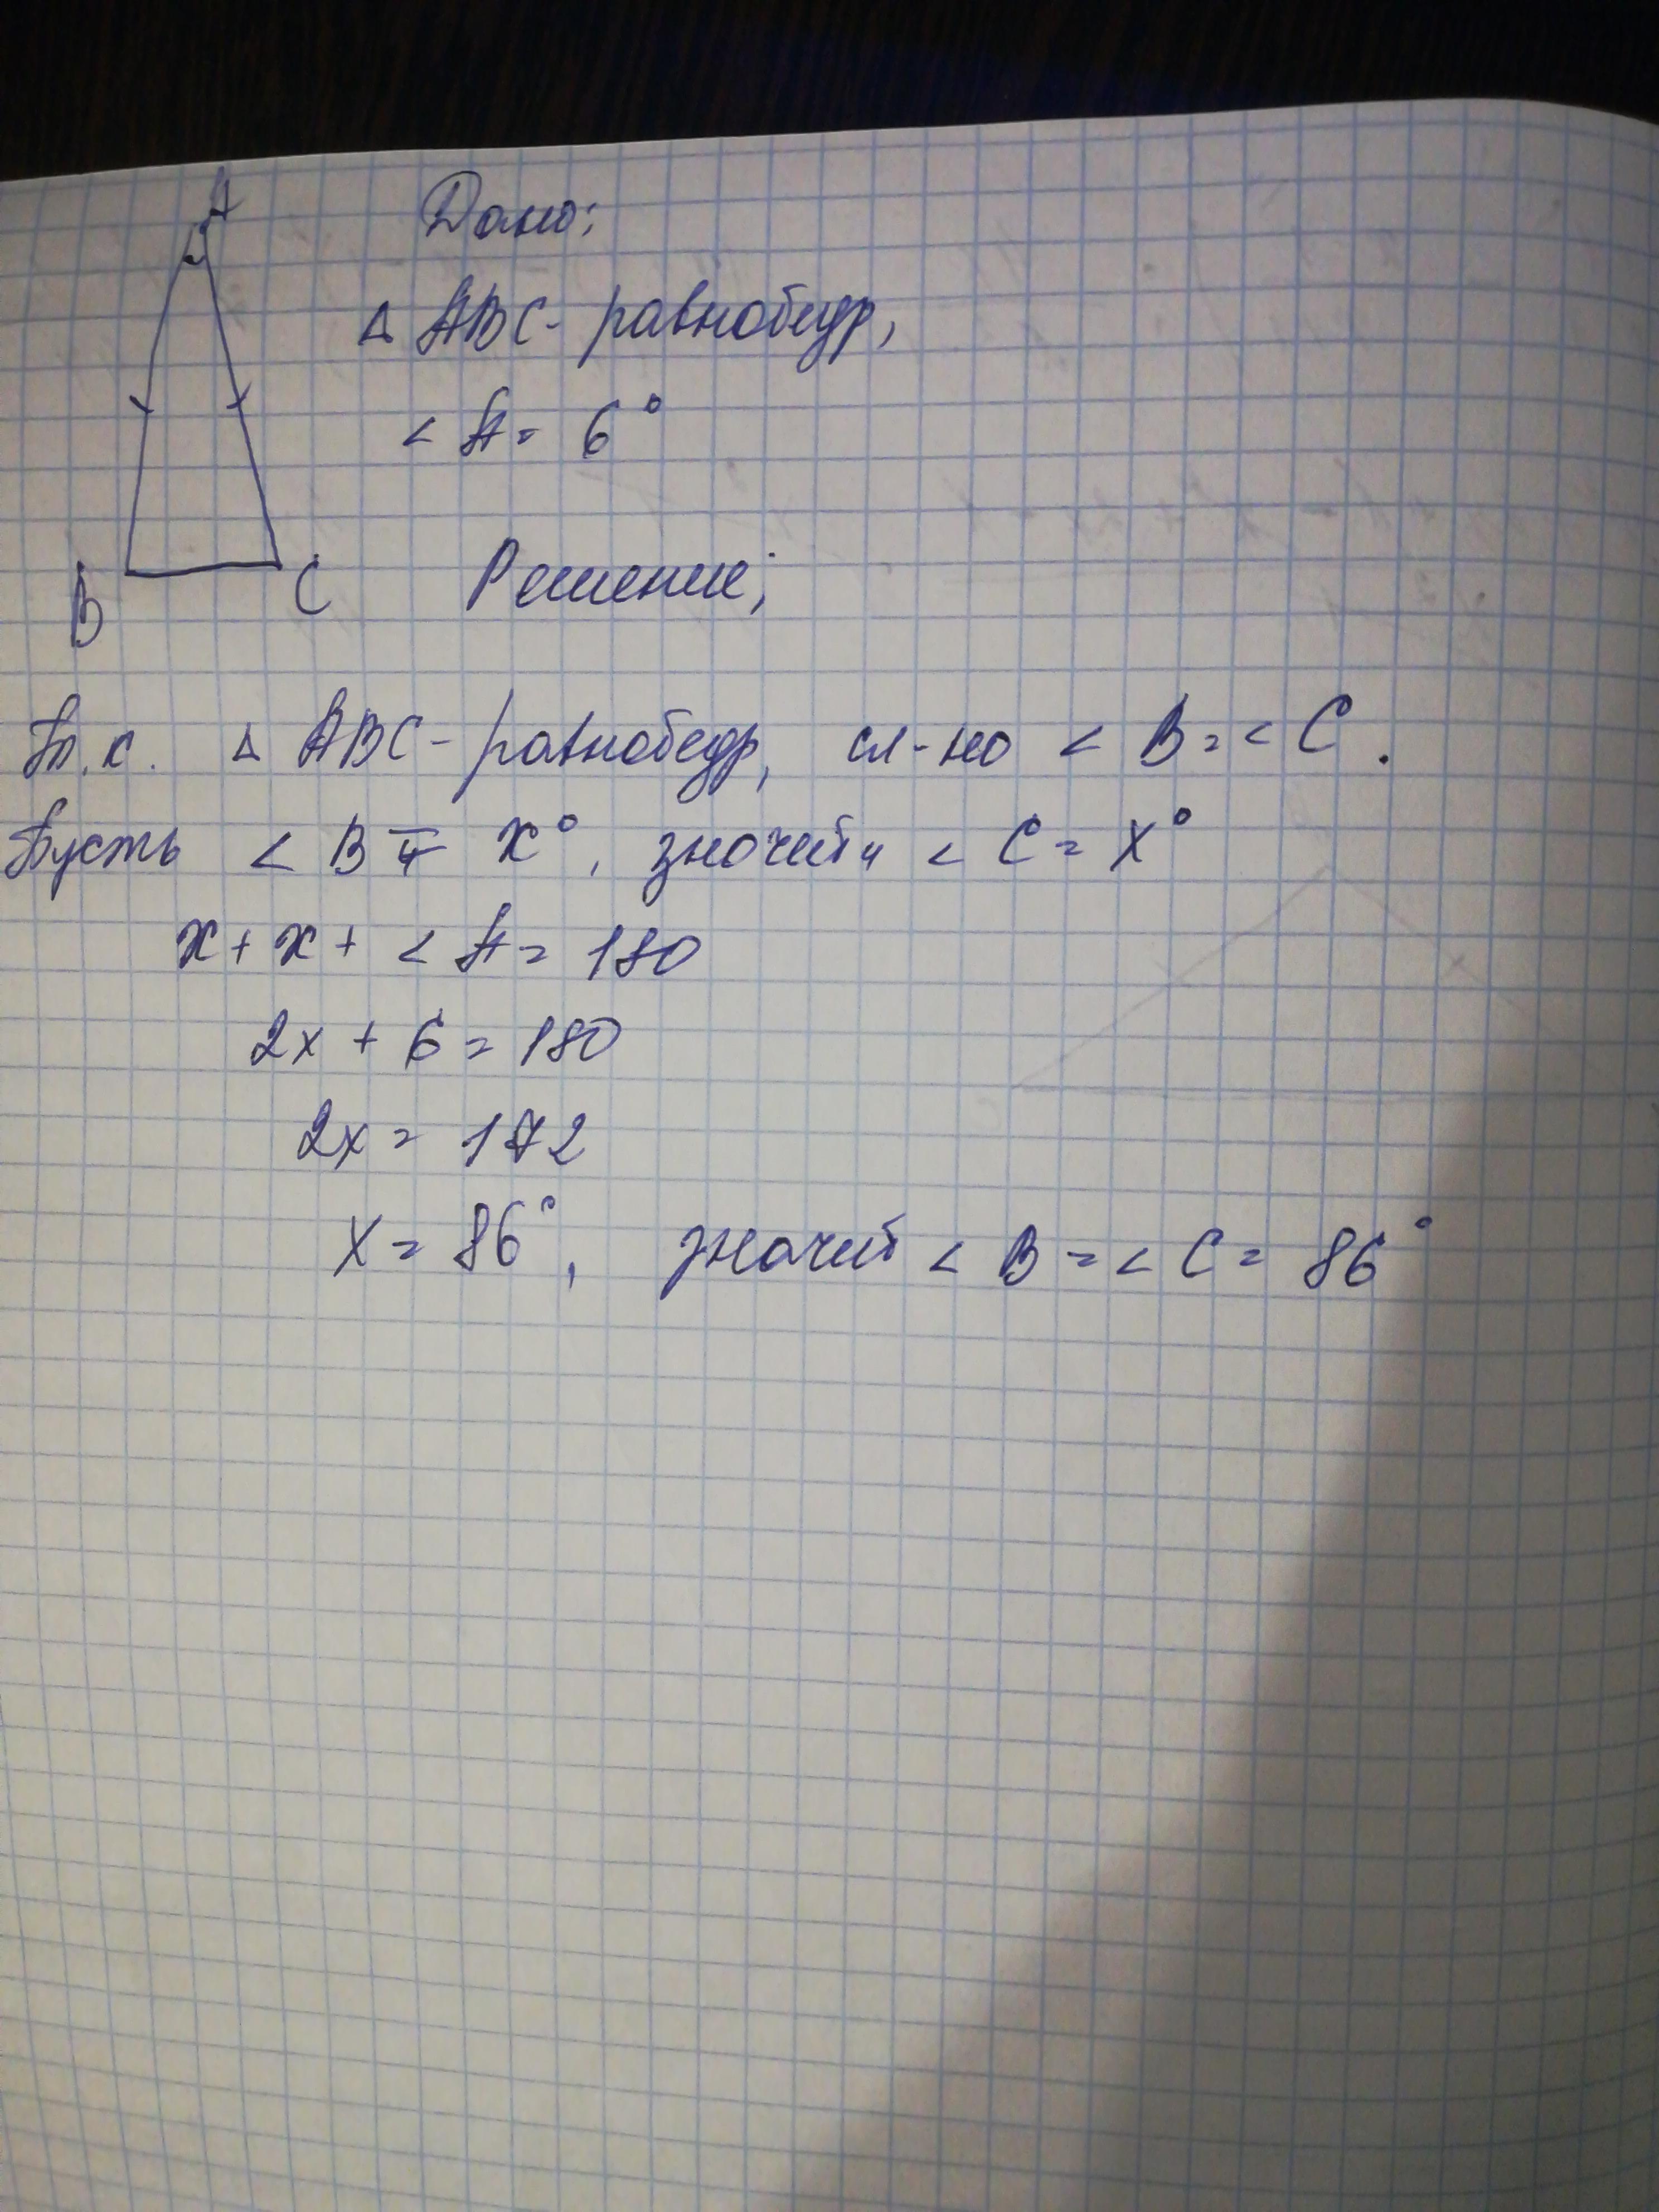 A
Дано:
△ ABC - равнобедр,
< A = 6°
B C Решение;
Т.к. △ ABC - равнобедр, сл-но < B = < C.
Пусть < B = x°, значит < C = x°
x + x + < A = 180
2x + 6 = 180
2x = 172
x = 86°, значит < B = < C = 86°